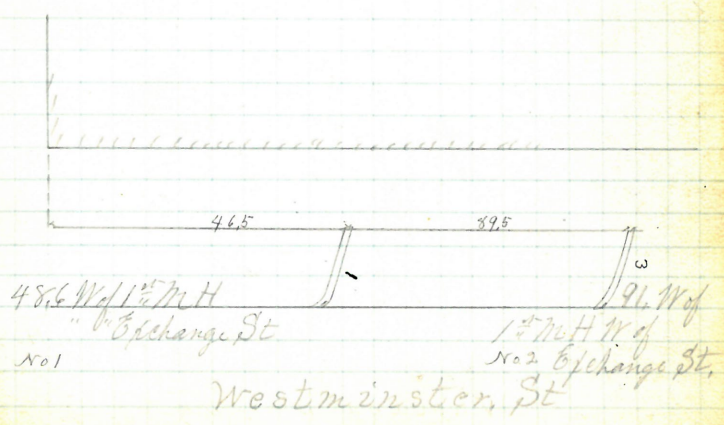 46.5 89.5
1 3
48.6 W of 1st M H
" " Exchange St
No 1
91. W of
1st M H W of
No 2 Exchange St.
Westminster. St